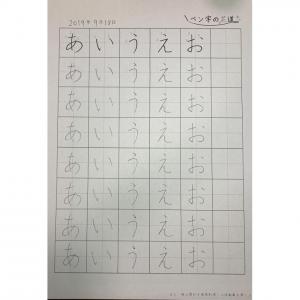 2019年9月18日
ペン字の三道
あいうえお
あいうえお
あいうえお
あいうえお
あいうえお
あいうえお
あいうえお
あいうえお